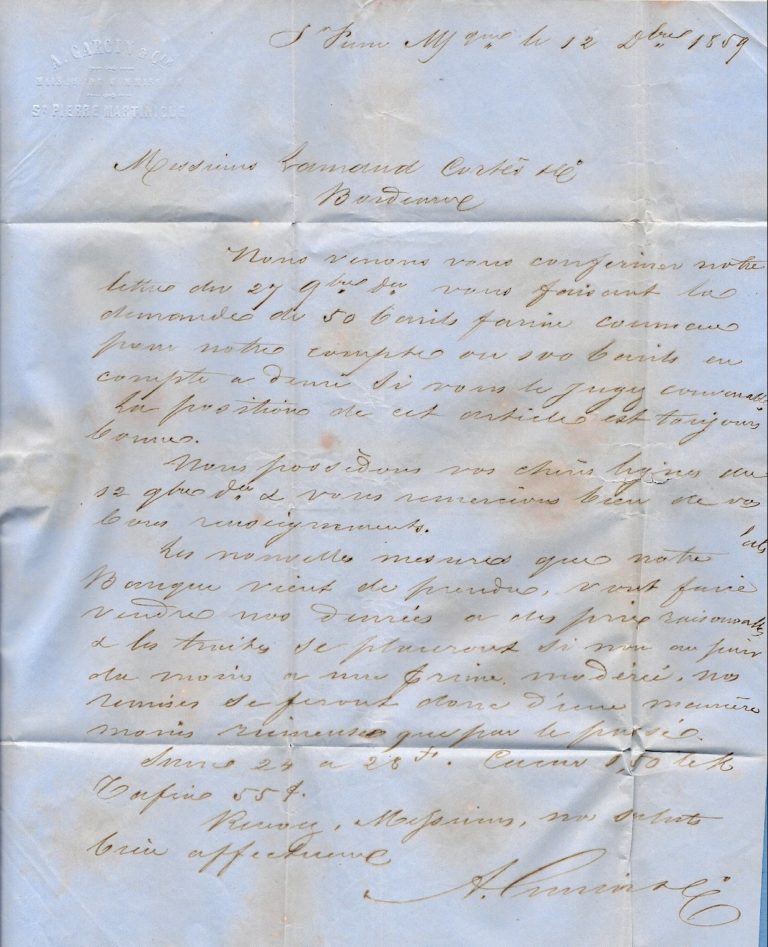 A. GARCIN & Cie
ST PIERRE MARTINIQUE
St Pierre Mque le 12 Dbre 1859
Messieurs Lamaud Cortès & Cie
Bordeaux
Nous venons vous confirmer notre
lettre du 27 9bre der vous faisant la
demande de 50 barils farine
pour notre compte ou 100 barils en
compte a demi si vous le jugez convenable
La position de cet article est toujours
bonne.
Nous possédons vos chères lignes du
12 9bre der & vous remercions bien de vos
bons renseignements.
Les nouvelles mesures que notre
Banque vient de prendre, vont faire
vendre nos denrées a des prix raisonnables
& les traites se placeront si non au pair
du moins a une prime modérée, nos
remises se feront donc d'une manière
moins ruineuse que par le passé.
Sucre 24 a 28 f. Cacao le K
Tafia 55 f.
Recevez, Messieurs, nos saluts
bien affectueux
A. Garcin & Cie